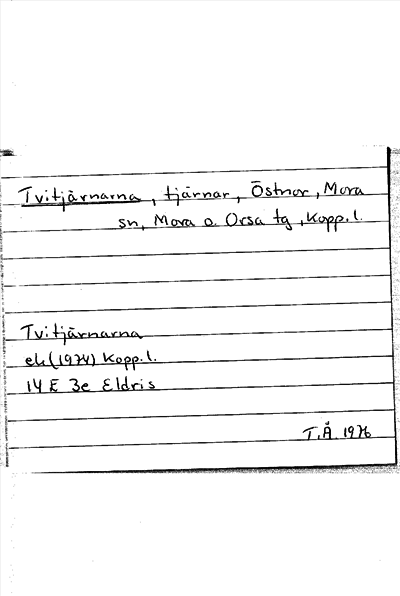 Tvitjärnarna, tjärnar, Östnor, Mora
sn, Mora o. Orsa tg, Kopp. l.
Tvitjärnarna
ek (1974) Kopp. l.
14 E 3e Eldris
T.Å. 1976